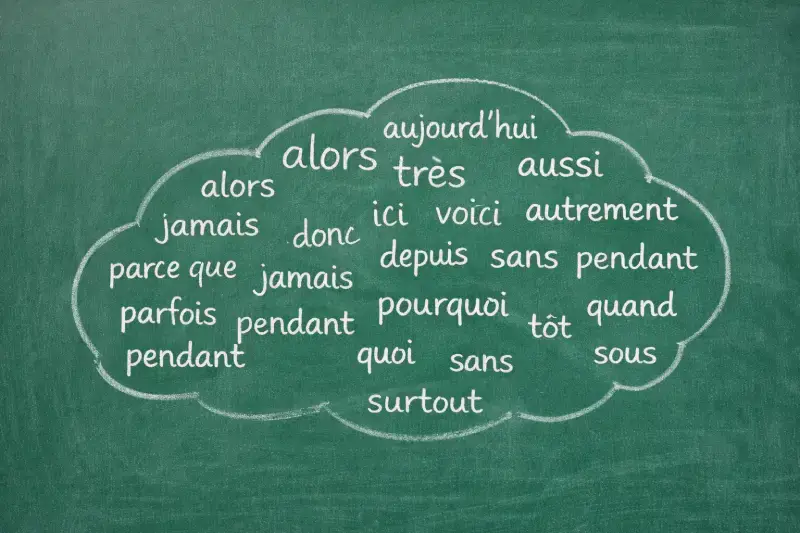 aujourd'hui
alors très aussi
alors
jamais donc ici voici autrement
parce que jamais depuis sans pendant
parfois pendant pourquoi tôt quand
pendant quoi sans sous
surtout